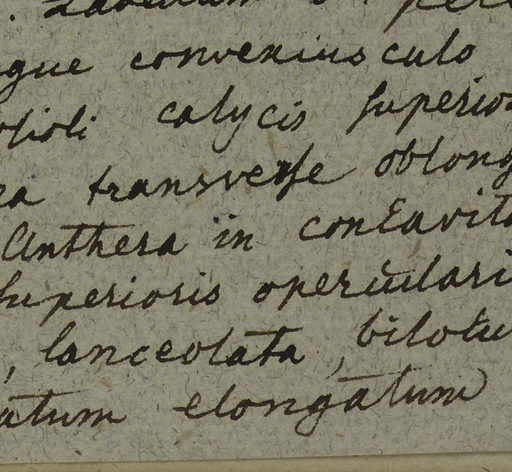 que convexiusculo
calycis superio
ea transverse oblong
Anthera in concavita
superioris operculari
, lanceolata, bilo
atum elongatum